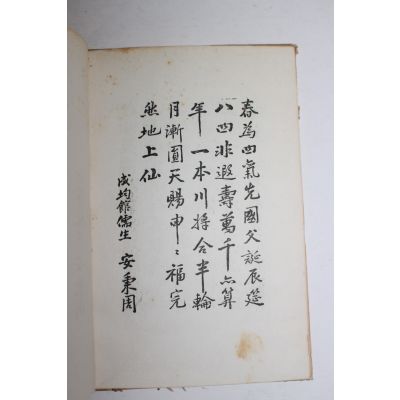 春為四氣先國父誕辰筵
八四非遐壽萬千亦算
年一本川捋合半輪
月漸圓天賜申〻福完
然地上仙
成均館儒生 安秉周